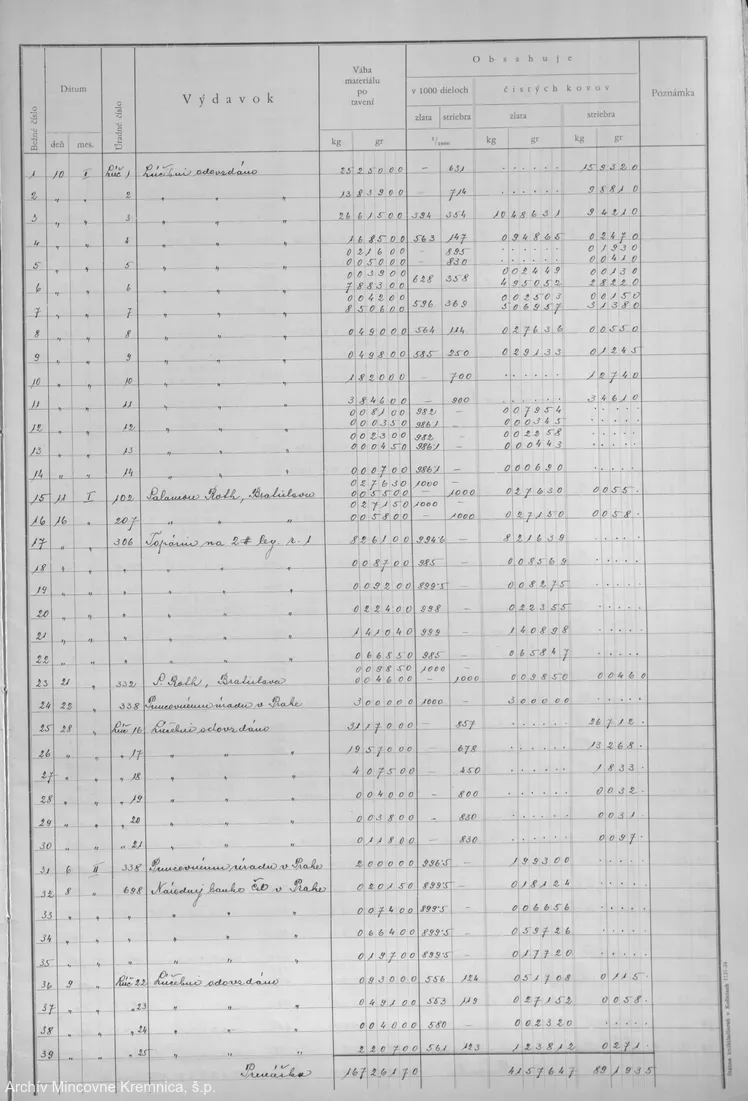 Obsahuje
Bežné číslo
Dátum
Úradné číslo
Výdavok
Váha materiálu po tavení
v 1000 dieloch
čistých kovov
Poznámka
deň mes. kg gr zlata striebra zlata striebra
1/1000 kg gr kg gr
1 10 I Lúč 1 Lúčebni odovzdáno 25 25000 – 631 . . . . . . 15 9320
2 „ „ 2 „ „ „ 13 83900 – 714 . . . . . . 9 8810
3 „ „ 3 „ „ „ 26 61500 394 354 10 48631 9 4210
4 „ „ 4 „ „ „ 1 68500 563 147 0 94865 0 2470
0 21600 – 895 . . . . . . 0 1930
5 „ „ 5 „ „ „ 0 05000 – 830 . . . . . . 0 0410
0 03900 628 358 0 02449 0 0130
6 „ „ 6 „ „ „ 7 88300 4 95052 2 8220
0 04200 596 369 0 02503 0 0150
7 „ „ 7 „ „ „ 8 50600 5 06957 3 1380
8 „ „ 8 „ „ „ 0 49000 564 114 0 27636 0 0550
9 „ „ 9 „ „ „ 0 49800 585 250 0 29133 0 1245
10 „ „ 10 „ „ „ 1 82000 – 700 . . . . . . 1 2740
11 „ „ 11 „ „ „ 3 84600 – 900 . . . . . . 3 4610
0 08100 982 – 0 07954 . . . . .
12 „ „ 12 „ „ „ 0 00350 986.1 – 0 00345 . . . . .
0 02300 982 – 0 02258 . . . . .
13 „ „ 13 „ „ „ 0 00450 986.1 – 0 00443 . . . . .
14 „ „ 14 „ „ „ 0 00700 986.1 – 0 00690 . . . . .
0 27630 1000 –
15 11 I 102 Salamon Roth, Bratislava 0 05500 – 1000 0 27630 0 055.
0 27150 1000
16 16 „ 207 „ „ „ 0 05800 – 1000 0 27150 0 058.
17 „ „ 306 Topárni na 2# leg. r. 1 8 26100 994.6 – 8 21639 . . . . .
18 „ „ „ „ „ 0 08700 985 – 0 08569 . . . . .
19 „ „ „ „ „ 0 09200 899.5 – 0 08275 . . . . .
20 „ „ „ „ „ 0 22400 998 – 0 22355 . . . . .
21 „ „ „ „ „ 1 41040 999 – 1 40898 . . . . .
22 „ „ „ „ „ 0 66850 985 – 0 65847 . . . . .
0 09850 1000 –
23 21 „ 332 S. Roth, Bratislava 0 04600 – 1000 0 09850 0 0460
24 22 „ 338 Puncovnému úradu v Prahe 3 00000 1000 – 3 00000 . . . . .
25 28 „ Lúč 16 Lúčebni odovzdáno 31 17000 – 857 . . . . . . 26 712.
26 „ „ „ 17 „ „ „ 19 57000 – 678 . . . . . . 13 268.
27 „ „ „ 18 „ „ „ 4 07500 – 450 . . . . . . 1 833.
28 „ „ „ 19 „ „ „ 0 04000 – 800 . . . . . . 0 032.
29 „ „ „ 20 „ „ „ 0 03800 – 830 . . . . . . 0 031.
30 „ „ „ 21 „ „ „ 0 11800 – 830 . . . . . . 0 097.
31 6 II 338 Puncovnému úradu v Prahe 2 00000 996.5 – 1 99300 . . . . .
32 8 „ 698 Národný banko Čs v Prahe 0 20150 899.5 – 0 18124 . . . . .
33 „ „ „ „ „ 0 07400 899.5 – 0 06656 . . . . .
34 „ „ „ „ „ 0 66400 899.5 – 0 59726 . . . . .
35 „ „ „ „ „ 0 19700 899.5 – 0 17720 . . . . .
36 9 „ Lúč 22 Lúčebni odovzdáno 0 93000 556 124 0 51708 0 115.
37 „ „ „ 23 „ „ „ 0 49100 553 119 0 27152 0 058.
38 „ „ „ 24 „ „ „ 0 04000 580 0 02320 . . . . .
39 „ „ „ 25 „ „ „ 2 20700 561 123 1 23812 0 271.
Prenáška 167 26170 41 57647 89 1935
Archív Mincovne Kremnica, š.p.